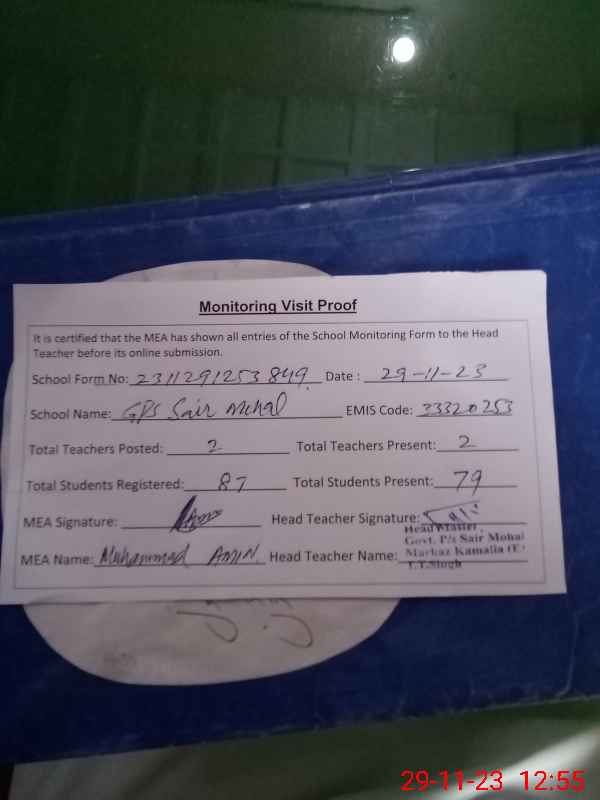 Monitoring Visit Proof
It is certified that the MEA has shown all entries of the School Monitoring Form to the Head
Teacher before its online submission.
School Form No: 2311291253849 Date : 29-11-23
School Name: GPS Sair Mehal EMIS Code: 33320253
Total Teachers Posted: 2 Total Teachers Present: 2
Total Students Registered: 87 Total Students Present: 79
MEA Signature: Head Teacher Signature:
MEA Name: Muhammad AMIN. Head Teacher Name:
Head Master,
Govt. P/s Sair Mohal
Markaz Kamalia (E)
T.T.Singh
29-11-23 12:55